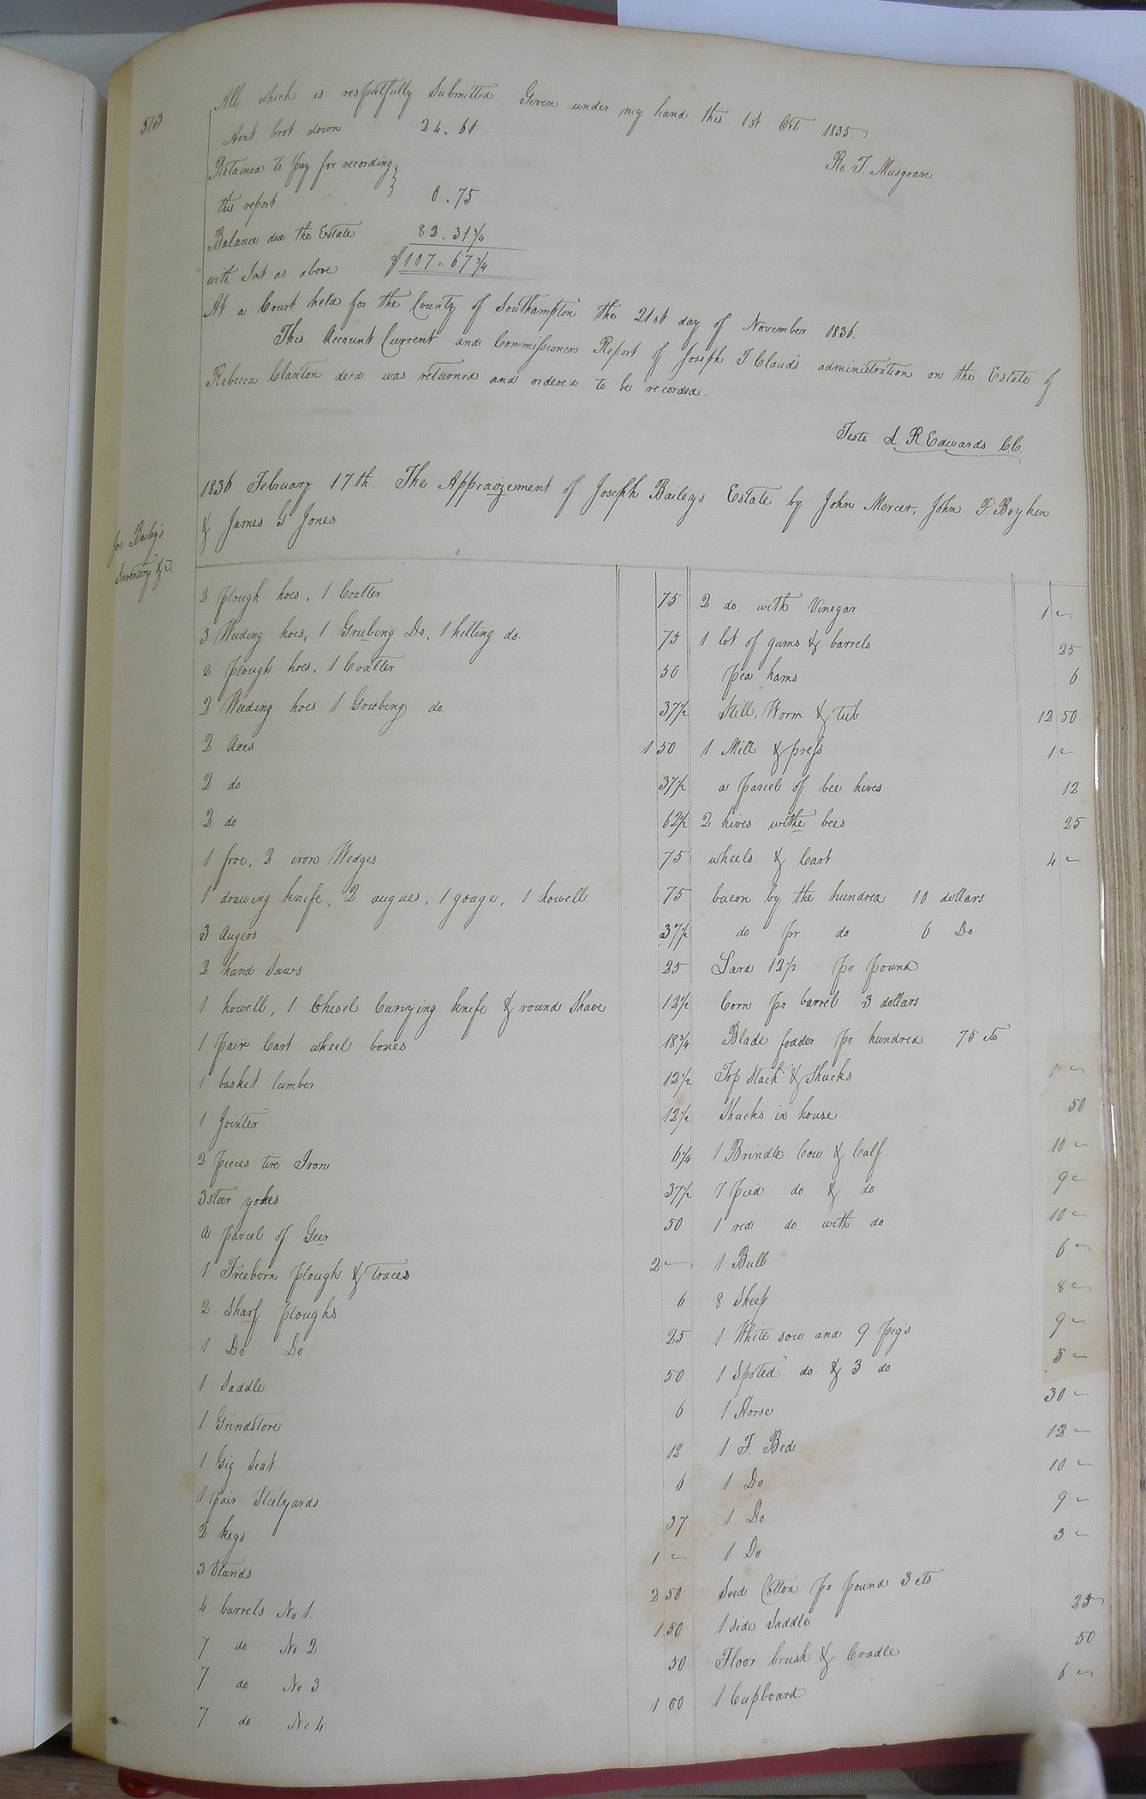 513
All which is respectfully Submitted. Given under my hand this 1st Oct 1835
Ro. T. Musgrave
Amt brot down 24.61
Retained to pay for recording
this report 0.75
Balance due the Estate 82.31 3/4
with Int as above $107.67 3/4
At a Court held for the County of Southampton the 21st day of November 1836.
This Account Current and Commissioners Report of Joseph T Clauds administration on the Estate of
Rebecca Clanton decd was returned and ordered to be recorded.
Teste L R Edwards CC.
Jos. Bailey's
Inventory &c
1836 February 17th. The Appraizement of Joseph Baileys Estate by John Mercer, John P. Boykin
& James G Jones
2 plough hoes, 1 Coalter 75
3 Weeding hoes, 1 Grubing Do, 1 hilling do. 75
2 plough hoes, 1 Coalter 50
2 Weeding hoes 1 Growbing do. 37 1/2
2 Axes 1 50
2 do 37 1/2
2 do 62 1/2
1 froe, 2 iron Wedges 75
1 drawing knife, 2 augues, 1 gouge, 1 howell 75
3 Augers 37 1/2
2 hand Saws 25
1 howell, 1 Chisel Currying knife & round Shave 12 1/2
1 pair Cart wheel boxes 18 3/4
1 basket lumber 12 1/2
1 Jointer 12 1/2
2 pieces tire Iron 6 1/4
3 steer yokes 37 1/2
a parcel of Geer 50
1 Freeborn plough & traces 2 —
2 Sharf ploughs 6
1 Do Do 25
1 Saddle 50
1 Grindstone 6
1 Gig Seat 12
1 pair Stelyards 6
2 kegs 37
3 Stands 1 —
4 barrels No 1. 2 50
7 do No 2 1 50
7 do No 3 50
7 do No 4 1 00
2 do. with Vinegar 1 —
1 lot of gums & barrels 25
pea hams 6
Still, Worm & tub 12 50
1 Mill & press 1 —
a parcel of bee hives 12
2 hives withe bees 25
wheels & Cart 4 —
bacon by the hundred 10 dollars
do pr do 6 Do
Lard 12 1/2 pr pound
Corn pr barrel 3 dollars
Blade fodder pr hundred 75 cts
Top Stack & Shucks 1 —
Shucks in house 50
1 Brindle Cow & Calf 10 —
1 pied do & do 9 —
1 red do. with do 10 —
1 Bull 6 —
8 Sheep 8 —
1 White sow and 9 pigs 9 —
1 Spoted do & 3 do 5 —
1 Horse 30 —
1 F. Bed 12 —
1 Do 10 —
1 Do 9 —
1 Do 3 —
Seed Cotton pr pound 3 cts
1 side Saddle 25
Floor brush & Cradle 50
1 Cupboard 6 —